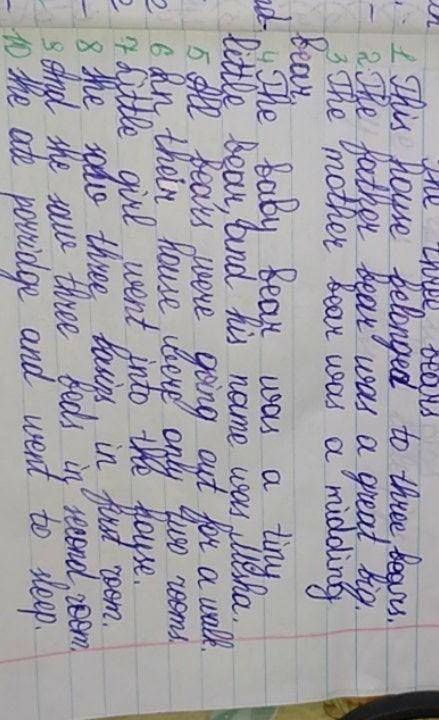 The three bears
1 This house belonged to three bears.
2 The father bear was a great big.
3 The mother bear was a midding
bear
4 The baby bear was a tiny
little bear and his name was Misha.
5 All bears were going out for a walk.
6 In their house were only two rooms
7 Little girl went into the house.
8 She saw three basins in first room.
9 And she saw three beds in second room.
10 She ate porridge and went to sleep.